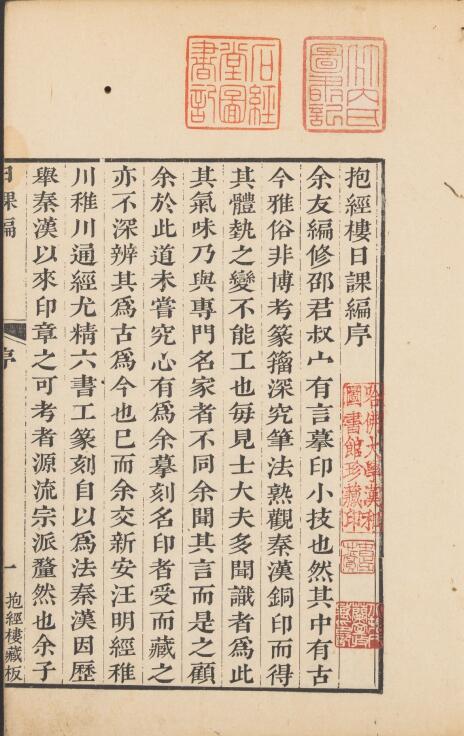 抱經樓日課編序
余友編修邵君叔宀有言摹印小技也然其中有古
今雅俗非博考篆籀深究筆法熟觀秦漢銅印而得
其體埶之變不能工也每見士大夫多聞識者為此
其氣味乃與專門名家者不同余聞其言而是之顧
余於此道未嘗究心有為余摹刻名印者受而藏之
亦不深辨其為古為今也巳而余交新安汪明經稚
川稚川通經尤精六書工篆刻自以為法秦漢因歷
舉秦漢以來印章之可考者源流宗派釐然也余子
日課編
序
一
抱經樓藏板
石經堂圖書記
圖書記
哈佛大學漢和圖書館珍藏印